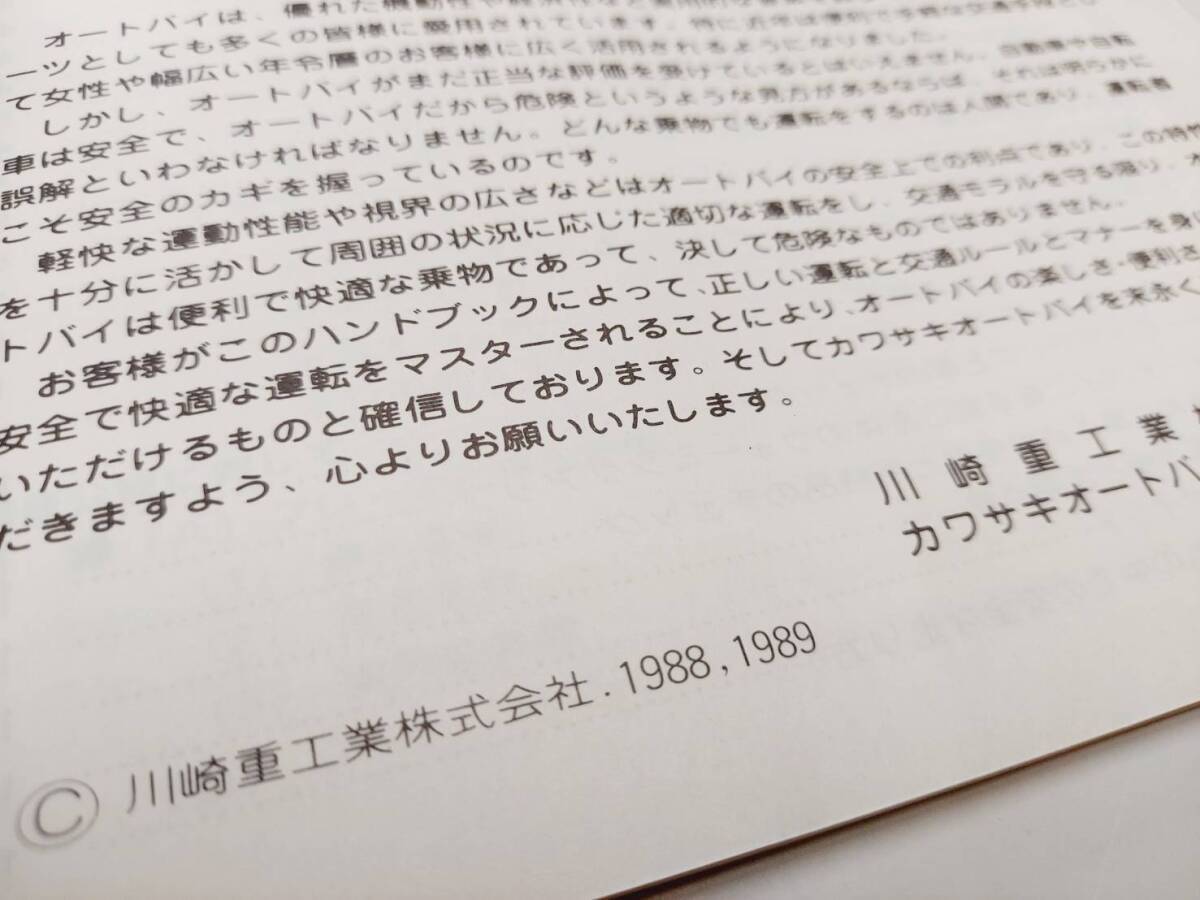 オートバイは、優れた機動性や経済性など実用的な
ーツとしても多くの皆様に愛用されています。特に近年は便利で手軽な交通手段とし
て女性や幅広い年令層のお客様に広く活用されるようになりました。
しかし、オートバイがまだ正当な評価を受けているとはいえません。自動車や自転
車は安全で、オートバイだから危険というような見方があるならば、それは明らかに
誤解といわなければなりません。どんな乗物でも運転をするのは人間であり、運転者
こそ安全のカギを握っているのです。
軽快な運動性能や視界の広さなどはオートバイの安全上での利点であり、この特
を十分に活かして周囲の状況に応じた適切な運転をし、交通モラルを守る限り、オ
トバイは便利で快適な乗物であって、決して危険なものではありません。
お客様がこのハンドブックによって、正しい運転と交通ルールとマナーを身
安全で快適な運転をマスターされることにより、オートバイの楽しさ・便利さ
いただけるものと確信しております。そしてカワサキオートバイを末永く
だきますよう、心よりお願いいたします。
川崎重工業
カワサキオートバ
Ⓒ 川崎重工業株式会社. 1988, 1989